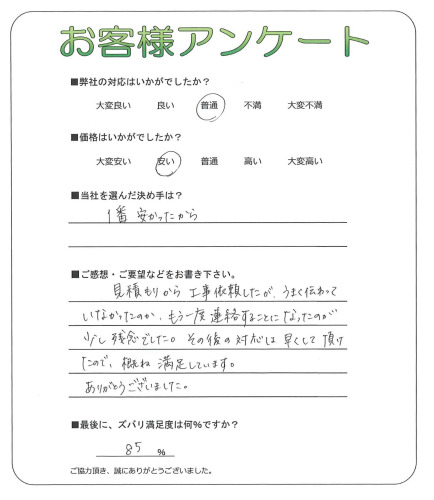 お客様アンケート
■弊社の対応はいかがでしたか？
大変良い 良い 普通 不満 大変不満
■価格はいかがでしたか？
大変安い 安い 普通 高い 大変高い
■当社を選んだ決め手は？
1番 安かったから
■ご感想・ご要望などをお書き下さい。
見積もりから 工事依頼したが、うまく伝わって
いなかったのか、もう一度 連絡することに なったのが
少し 残念でした。 その後の 対応は 早くして 頂け
たので、概ね 満足しています。
ありがとうございました。
■最後に、ズバリ満足度は何%ですか？
85 %
ご協力頂き、誠にありがとうございました。